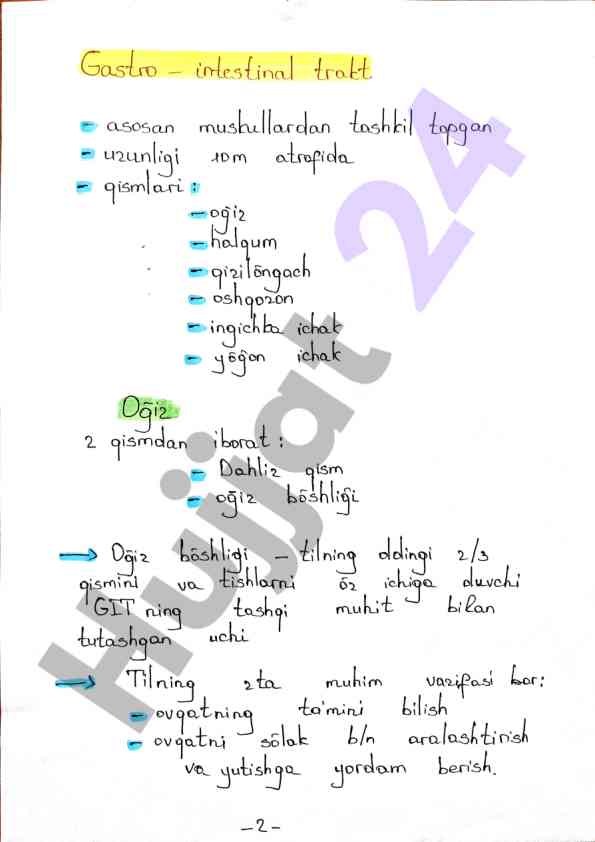 Gastro - intestinal trakt
- asosan muskullardan tashkil topgan
- uzunligi 10m atrofida
- qismlari :
- oğiz
- halqum
- qizilõngach
- oshqozon
- ingichka ichak
- yõğon ichak
Oğiz
2 qismdan iborat :
- Dahliz qism
- oğiz bõshliği
→ Oğiz bõshliği - tilning oldingi 2/3
qismini va tishlarni õz ichiga oluvchi
GIT ning tashqi muhit bilan
tutashgan uchi
→ Tilning 2ta muhim vazifasi bor:
- ovqatning ta'mini bilish
- ovqatni sõlak b/n aralashtirish
va yutishga yordam berish.
-2-
Hujjat 24